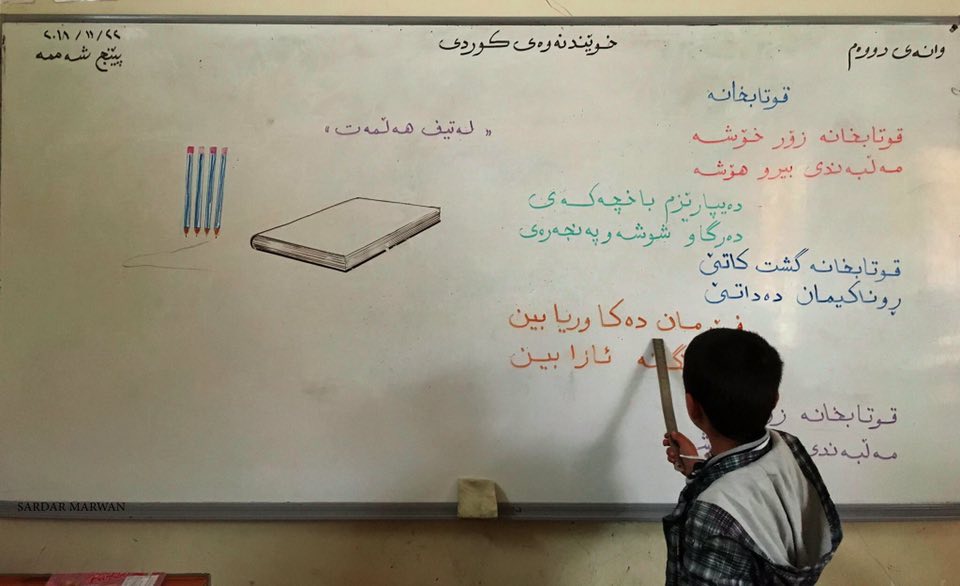 وانەی دووەم
خوێندنەوەی کوردی
٢٠١٨/١١/٢٢
پێنج شەممە
قوتابخانە
«لەتیف هەڵمەت»
قوتابخانە زۆر خۆشە
مەڵبەندی بیرو هۆشە
دەیپارێزم باخچەکەی
دەرگاو شوشەو پەنجەرەی
قوتابخانە گشت کاتێ
ڕوناکیمان دەداتێ
دەکا وریا بین
ئازا بین
قوتابخانە
مەڵبەندی
SARDAR MARWAN